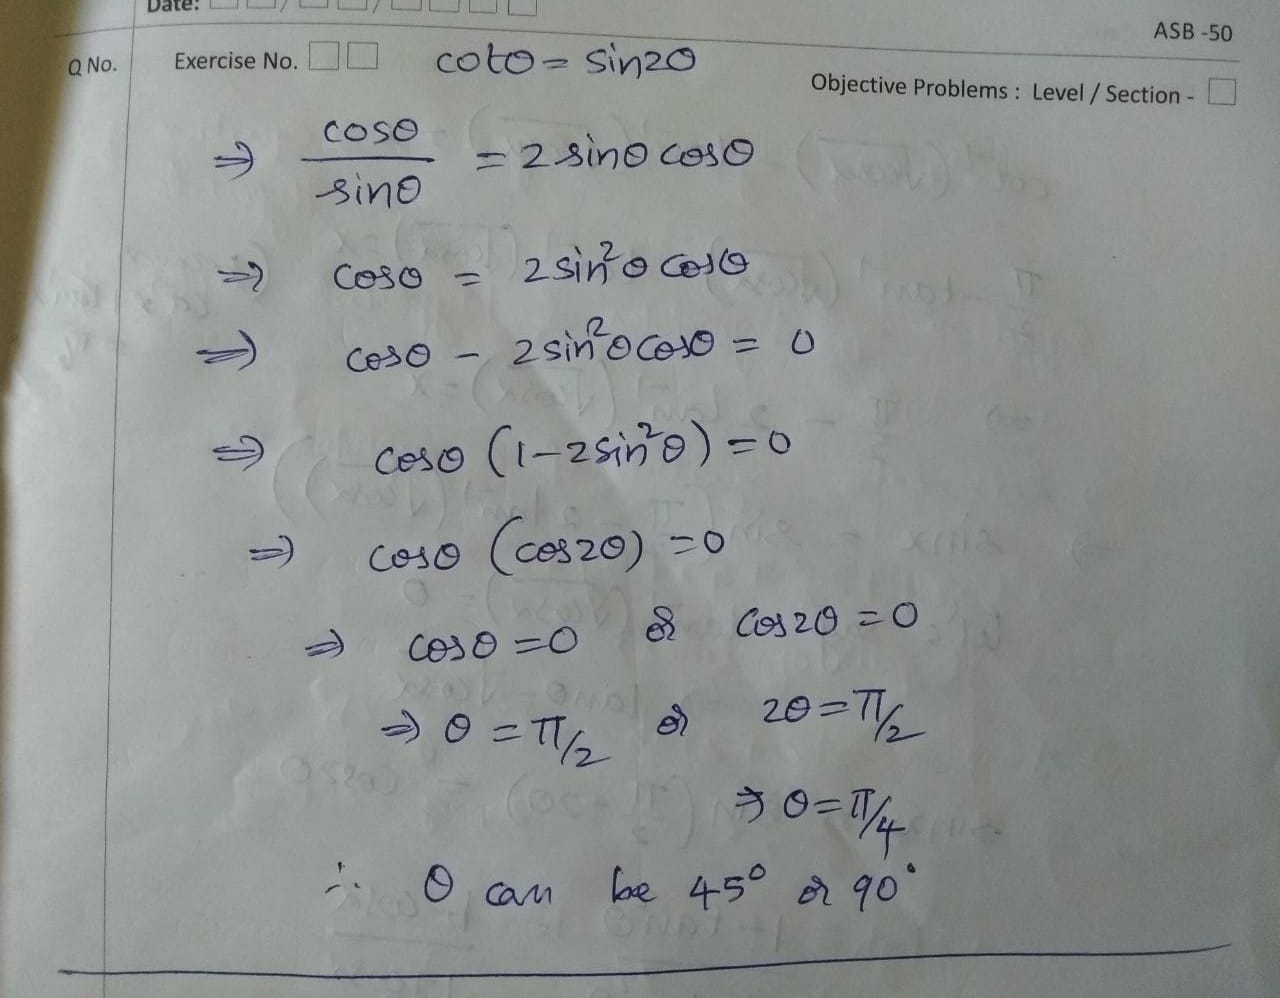 Date:
ASB -50
Q No. Exercise No. cotθ = sin2θ
Objective Problems : Level / Section -
⇒ cosθ/sinθ = 2 sinθ cosθ
⇒ cosθ = 2 sin²θ cosθ
⇒ cosθ - 2 sin²θ cosθ = 0
⇒ cosθ (1-2sin²θ) = 0
⇒ cosθ (cos2θ) = 0
⇒ cosθ = 0 or cos2θ = 0
⇒ θ = π/2 or 2θ = π/2
⇒ θ = π/4
∴ θ can be 45° or 90°